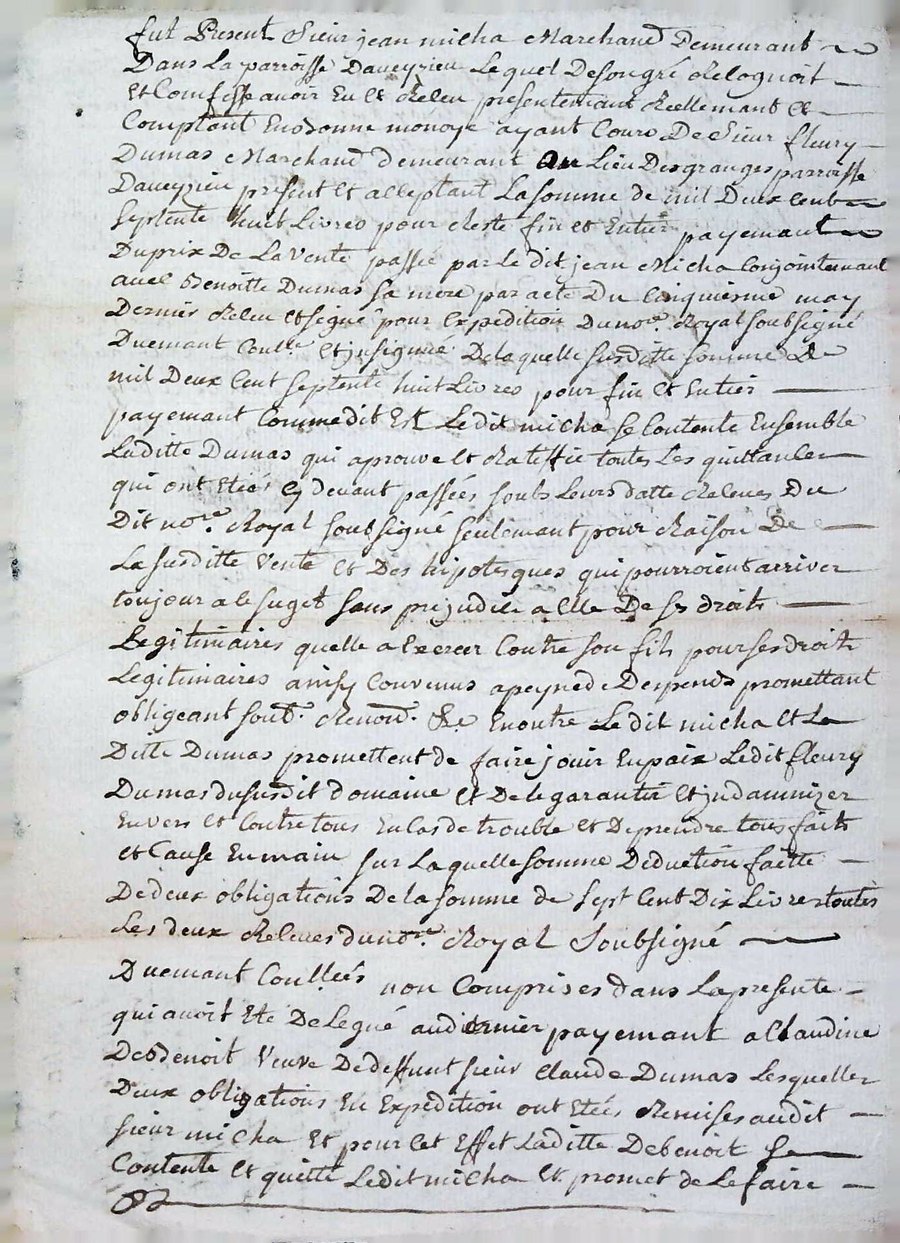 fut Present Sieur jean micha Marchand Demeurant
Dans La parroisse Daveyzieu Lequel De son gré Recognoit
Et Confesse avoir Eu et Receu presentemant Reellemant et
Comptant En bonne monoye ayant Cours De Sieur fleury
Dumas Marchand demeurant au Lieu Des granges parroisse
Daveyzieu present et acceptant La somme de mil Deux cent
septente huit Livres pour Reste fin et Entier payemant
Du prix De La Vente passée par le dit jean Micha Conjointemant
avec Benoitte Dumas sa mere par acte Du Cinquiesme may
Dernier Receu et segné pour Expedition Du nore. Royal soubsigné
Duemant Coulle. Et insignué De laquelle susditte somme De
mil Deux Cent septente huit Livres pour fin et Entier
payemant Comme dit Est Ledit micha se Contente Ensemble
Laditte Dumas qui aprouve et Ratiffie toutes Les quittances
qui ont Etéés cy devant passées soubs Leurs datte Receues Du
Dit nore. Royal soubsigné seulemant pour Raison De
La susditte Vente et Des hipotesques qui pourroient arriver
toujour a le suget sans prejudice a Elle De ses droits
Legitimaires quelle a Exercer Contre son fils pour ses droits
Legitimaires ainsy Convenus a peyne de Despends promettant
obligeant soub. Renon. &c. En outre Ledit micha et La
Ditte Dumas promettent de faire jouir En paix Ledit fleury
Dumas du susdit domaine et De le garantir et indamnizer
Envers et Contre tous En cas de trouble et De prendre tous faits
et Cause En main sur Laquelle somme Deduction faitte
De deux obligations De la somme de sept Cent Dix Livres toutes
Les deux Receues du nore. Royal Soubsigné
Duemant Coulleés non Comprises dans La presente
qui avoit Eté Delegué audit dernier payemant a Claudine
Desbenoit Veuve De deffunt sieur Claude Dumas Lesquelles
Deux obligations En Expedition ont Etéés Remises audit
sieur micha Et pour cet Effet Laditte Debenoit se
Contente et quitte Ledit micha et promet de Le faire